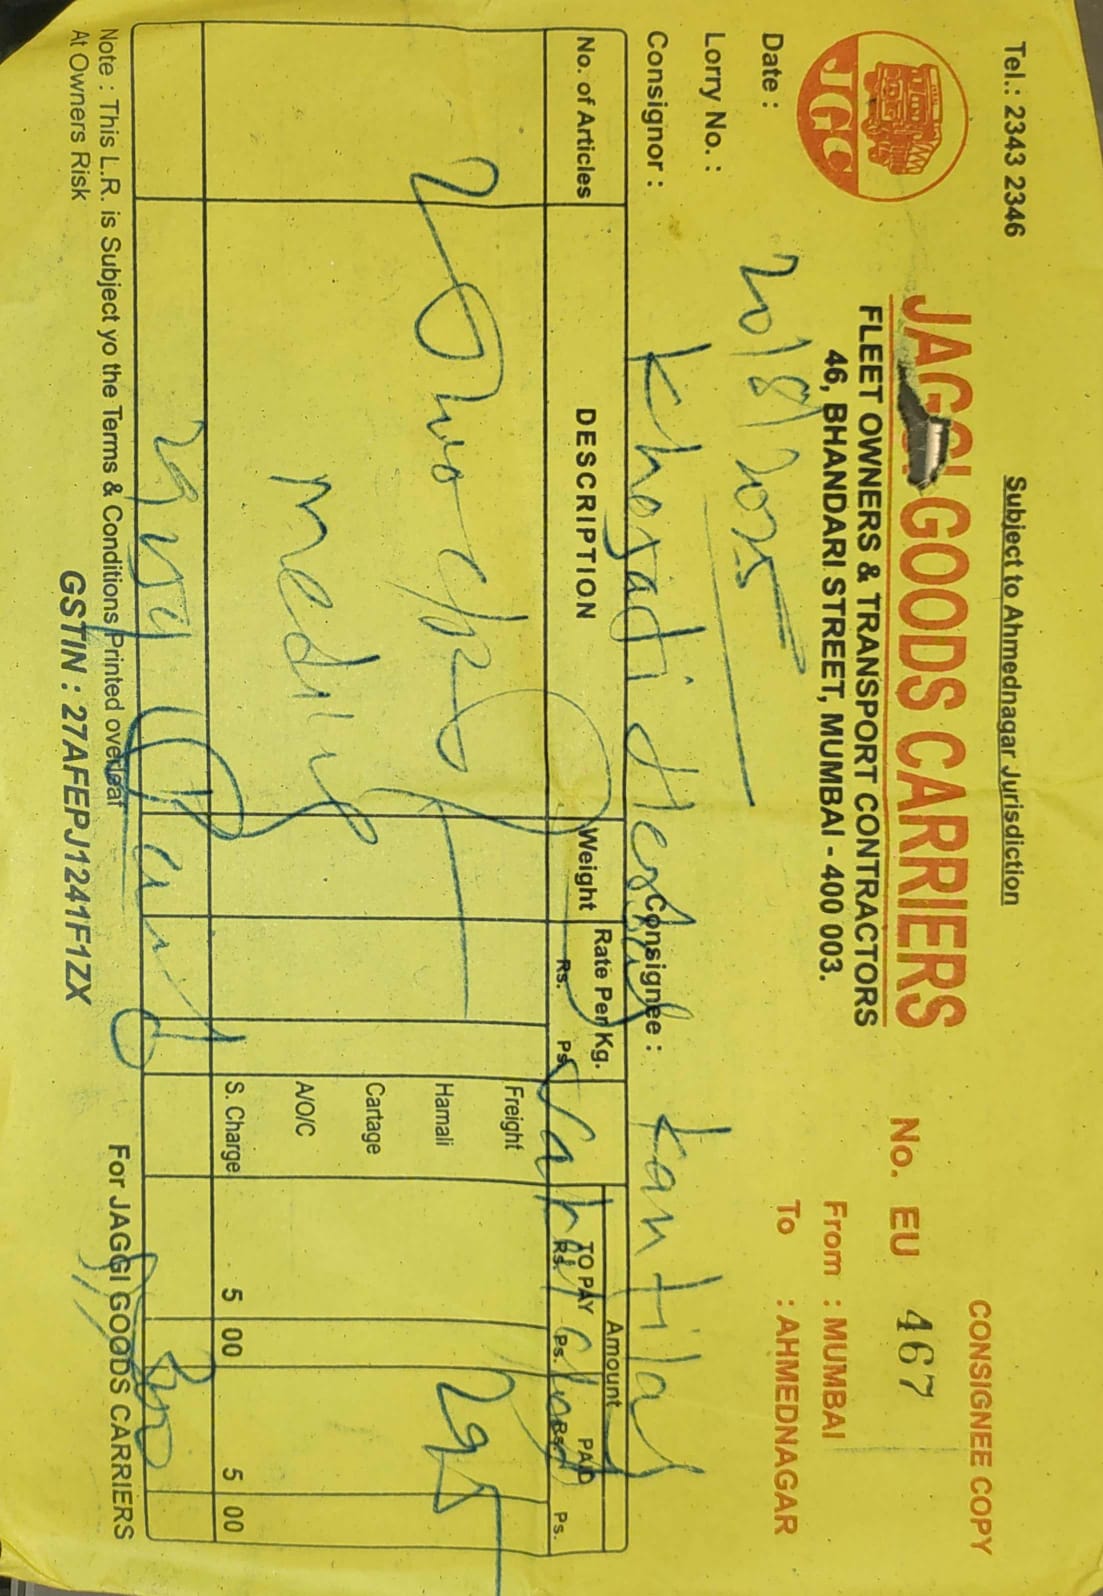 Tel.: 2343 2346
Subject to Ahmednagar Jurisdiction
CONSIGNEE COPY
JGC
JAGGI GOODS CARRIERS
No. EU 467
FLEET OWNERS & TRANSPORT CONTRACTORS
46, BHANDARI STREET, MUMBAI - 400 003.
From : MUMBAI
To : AHMEDNAGAR
Date : 20/8/2025
Lorry No. :
Consignor : Khojati
Consignee : Kantilal
No. of Articles
DESCRIPTION
Weight
Rate Per Kg.
Rs. Ps.
Amount
TO PAY
Rs. Ps.
PAID
Rs. Ps.
Freight
2 Two
Hamali
295
Cartage
A/O/C
S. Charge 5 00 5 00
300
Note : This L.R. is Subject yo the Terms & Conditions Printed overleaf
At Owners Risk
GSTIN : 27AFEPJ1241F1ZX
For JAGGI GOODS CARRIERS